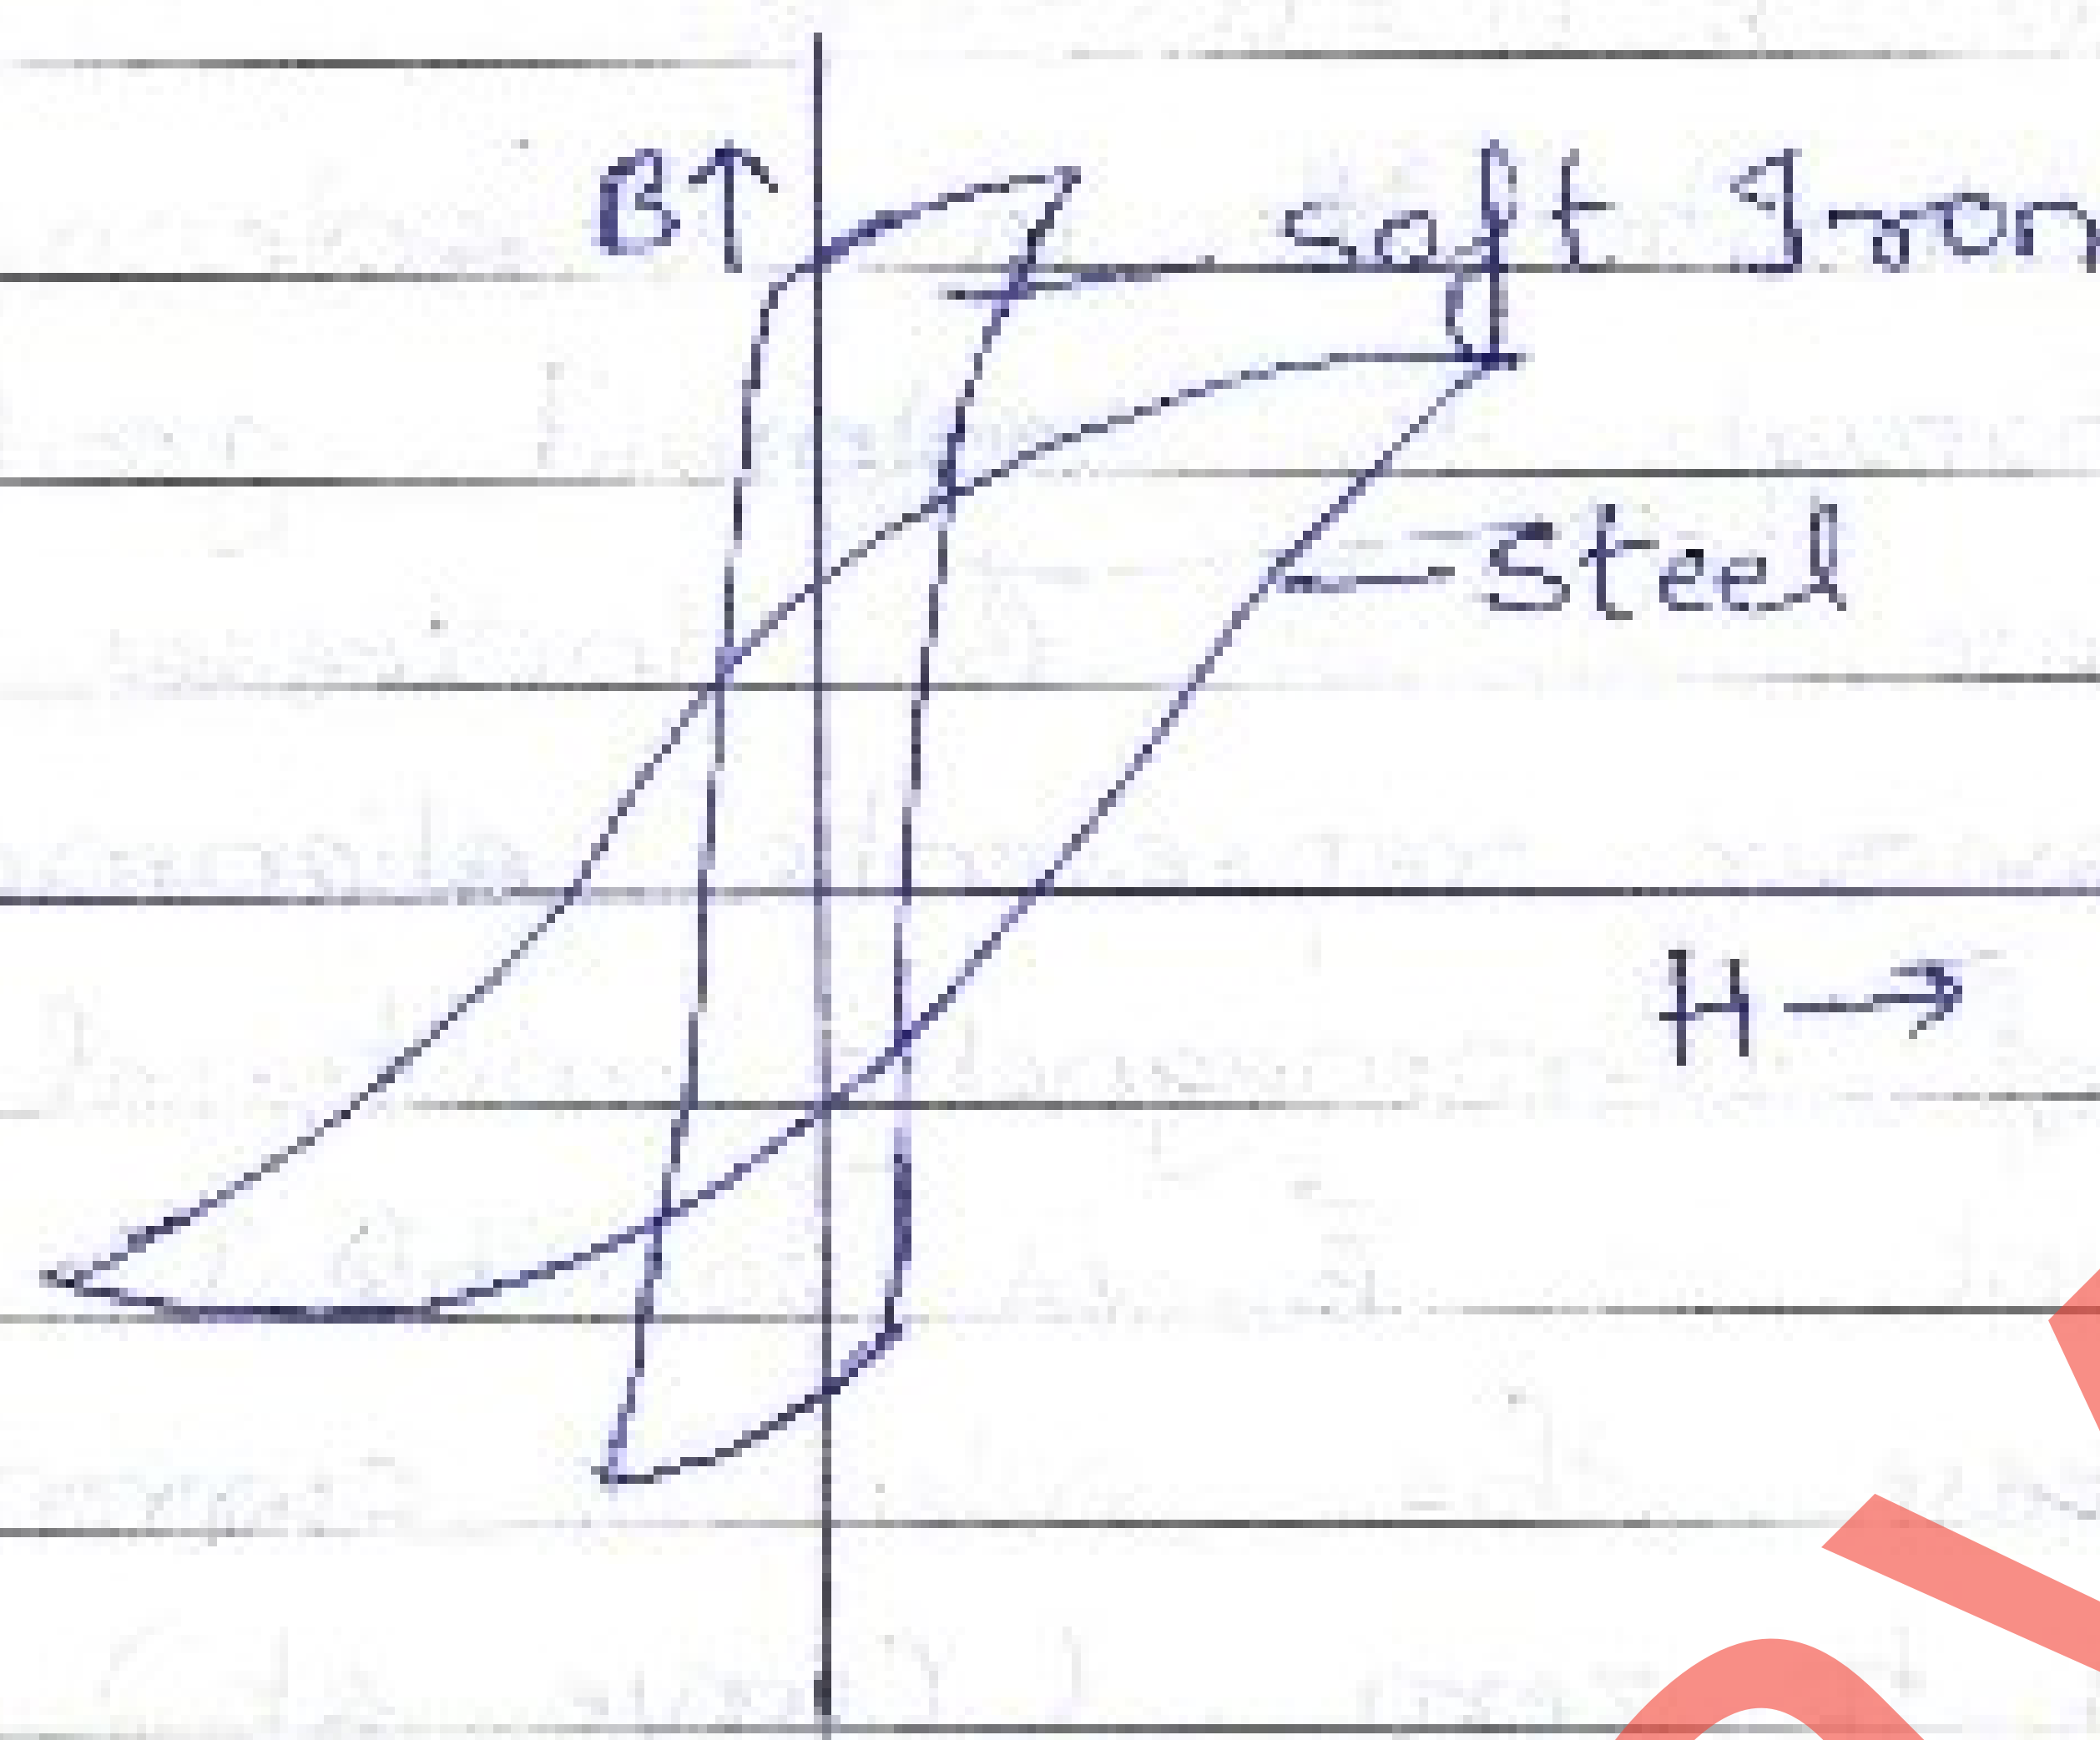 B↑ Soft Iron
Steel
H→